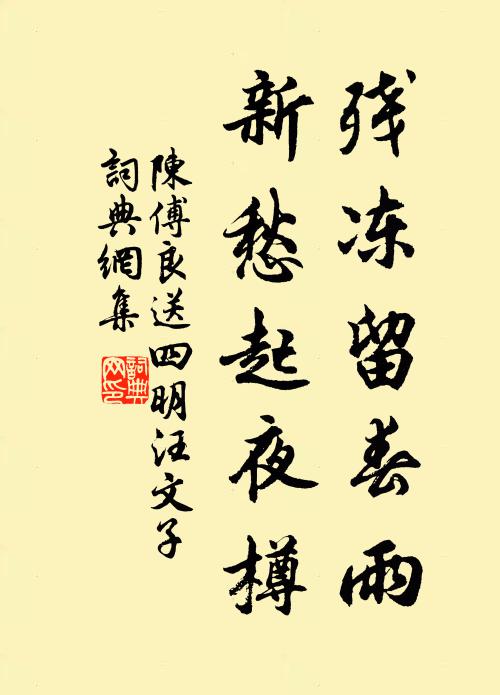 残冻留春雨
新愁起夜樽
陳傅良送四明汪文子
詞典網集
詞典网印